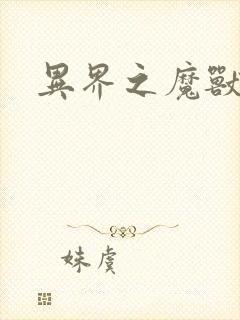 異界之魔獸
妹虞